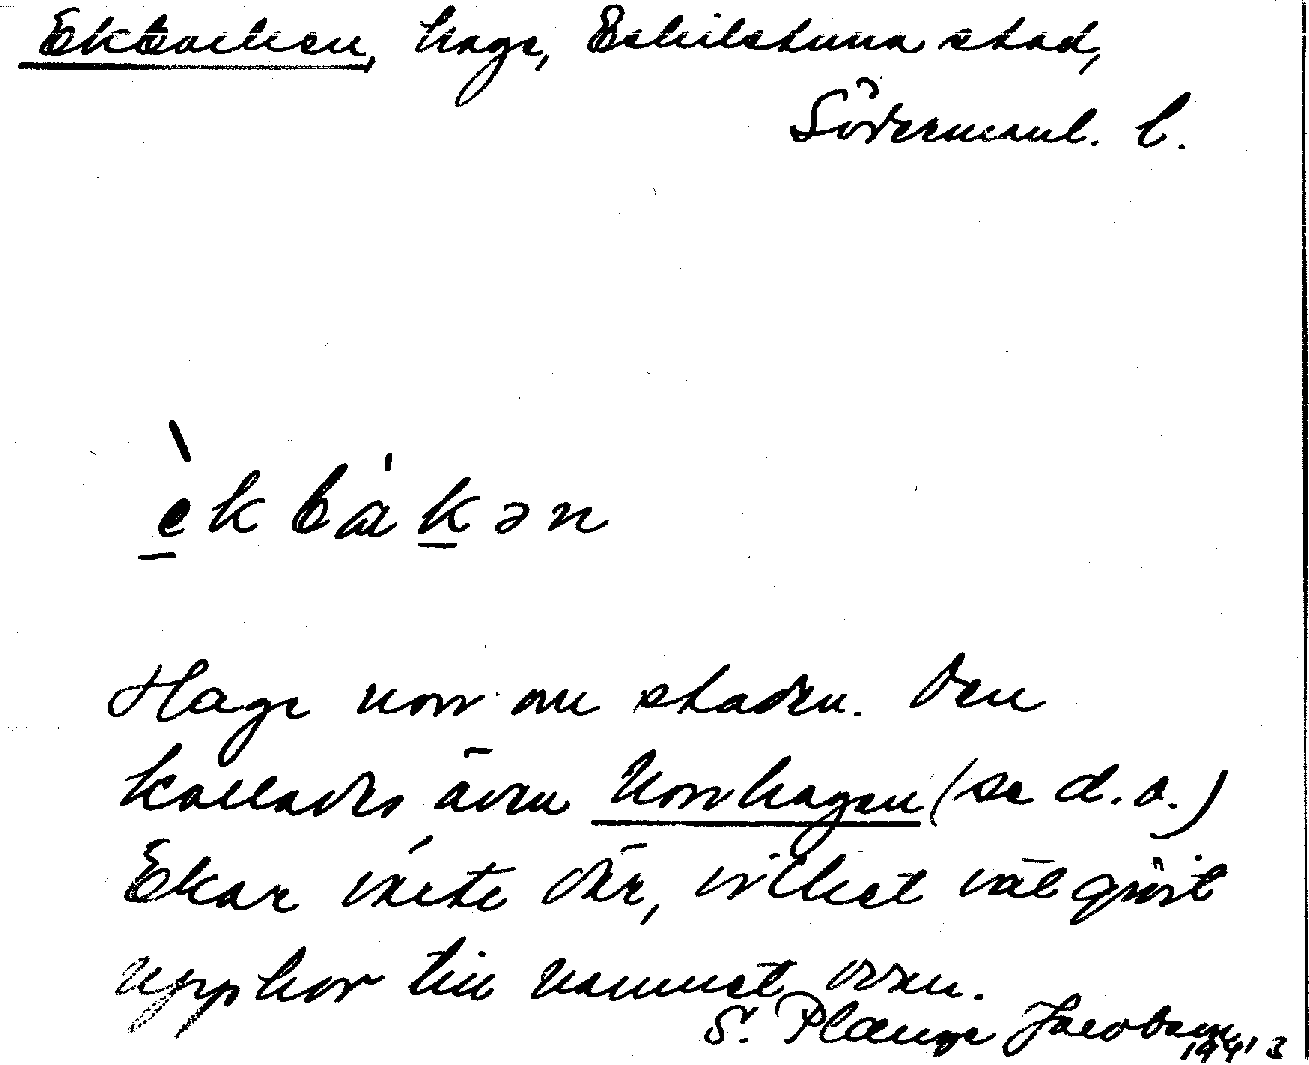 Ekbacken, hage, Eskilstuna stad,
Södermanl. l.
èkbàkən
Hage norr om staden. Den
kallades även Norrhagen (se d.o.)
Ekar växte där, vilket väl givit
upphov till namnet ovan.
S. Plænge Jacobson